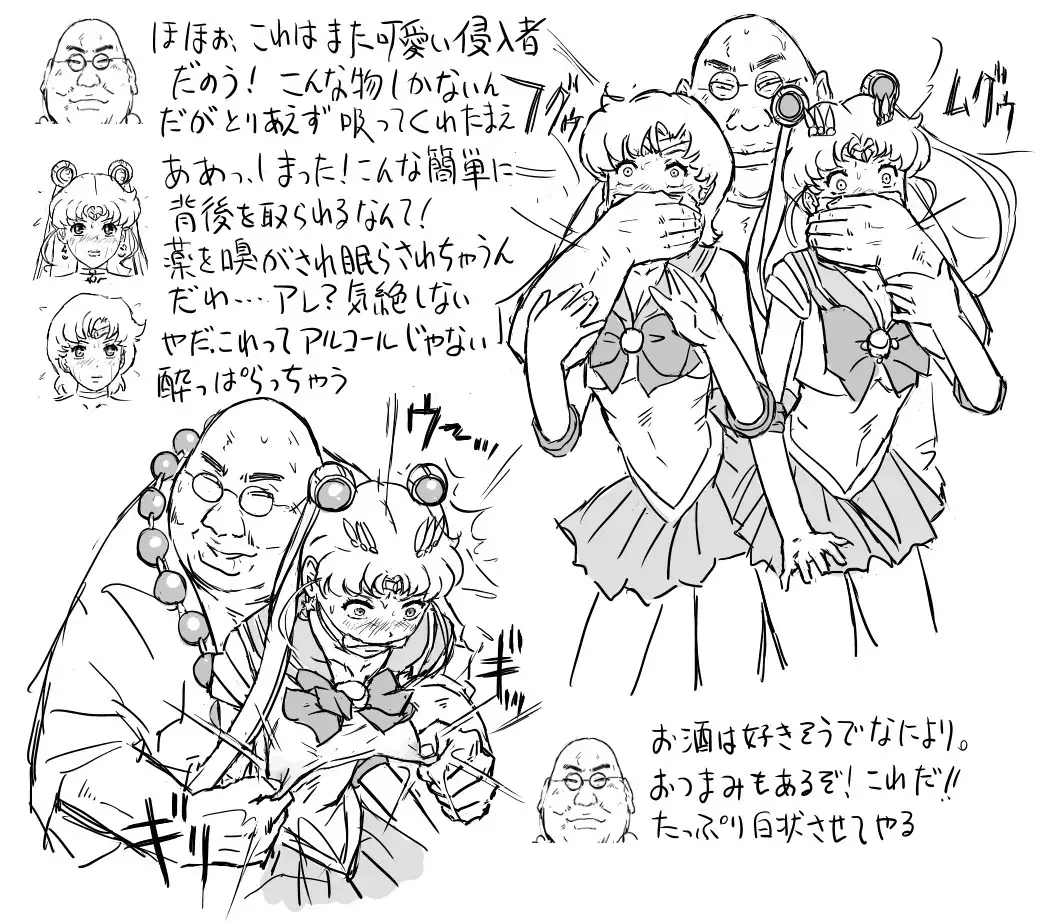 ほほぉ、これはまた可愛い侵入者
だのう！こんな物しかないん
だがとりあえず吸ってくれたまえ
ああっ、しまった！こんな簡単に
背後を取られるなんて！
薬を嗅がされ眠らされちゃうん
だわ‥‥アレ？気絶しない
やだ、これってアルコールじゃない
酔っぱらっちゃう
フグゥ
ムグゥ
ウ〜…
ギッ
ギギ
お酒は好きそうでなにより。
おつまみもあるぞ！これだ!!
たっぷり白状させてやる